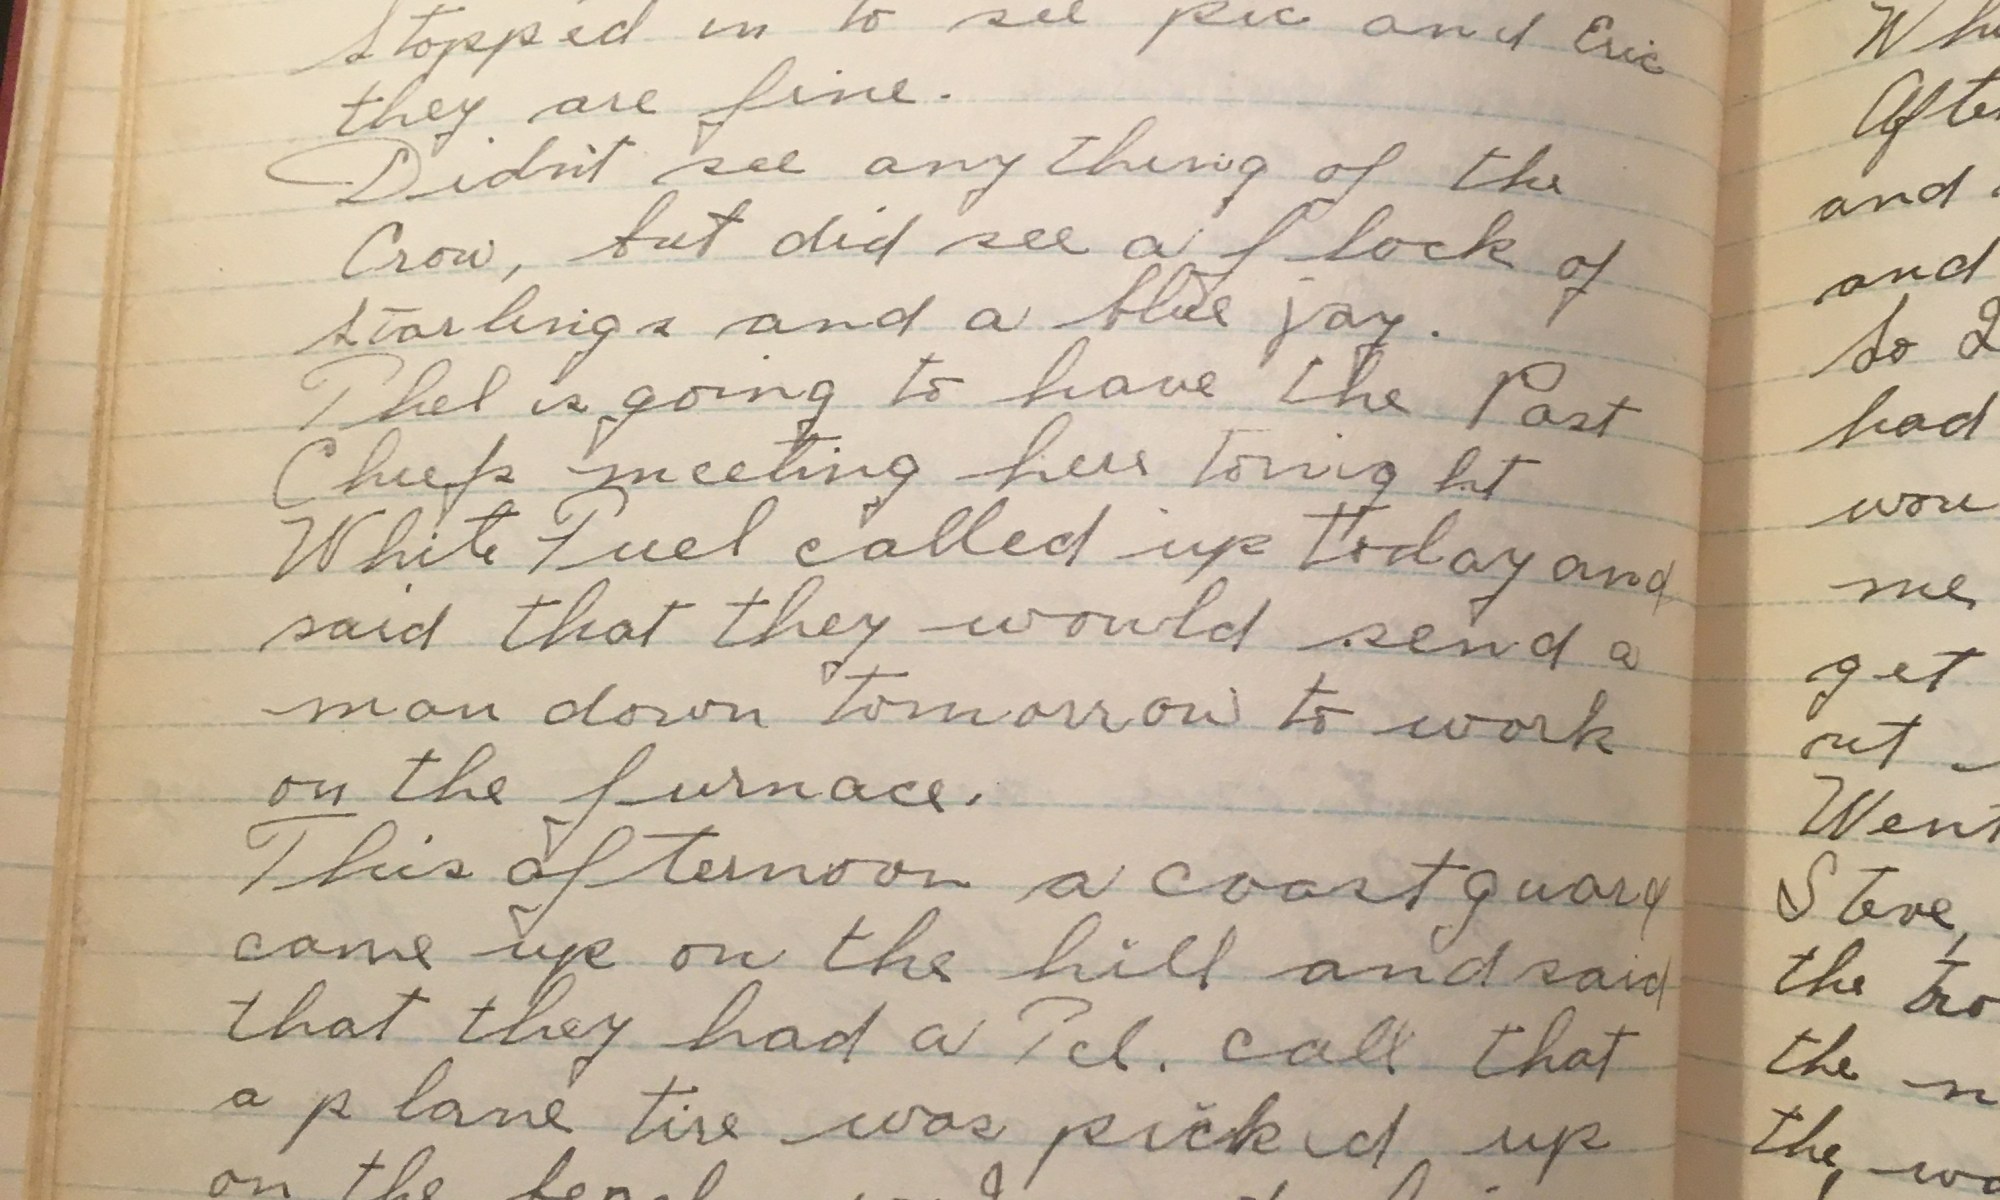 stopped in to see pic and Eric
they are fine.
Didn't see anything of the
Crow, but did see a flock of
starlings and a blue jay.
Phel is going to have the Past
Chiefs meeting here tonight
White Fuel called up today and
said that they would send a
man down tomorrow to work
on the furnace.
This afternoon a coastguard
came up on the hill and said
that they had a Tel. call that
a plane tire was picked up
on the
Whe
After
and
and
so I
had
wou
me
get
out
Went
Steve,
the tro
the n
the wa